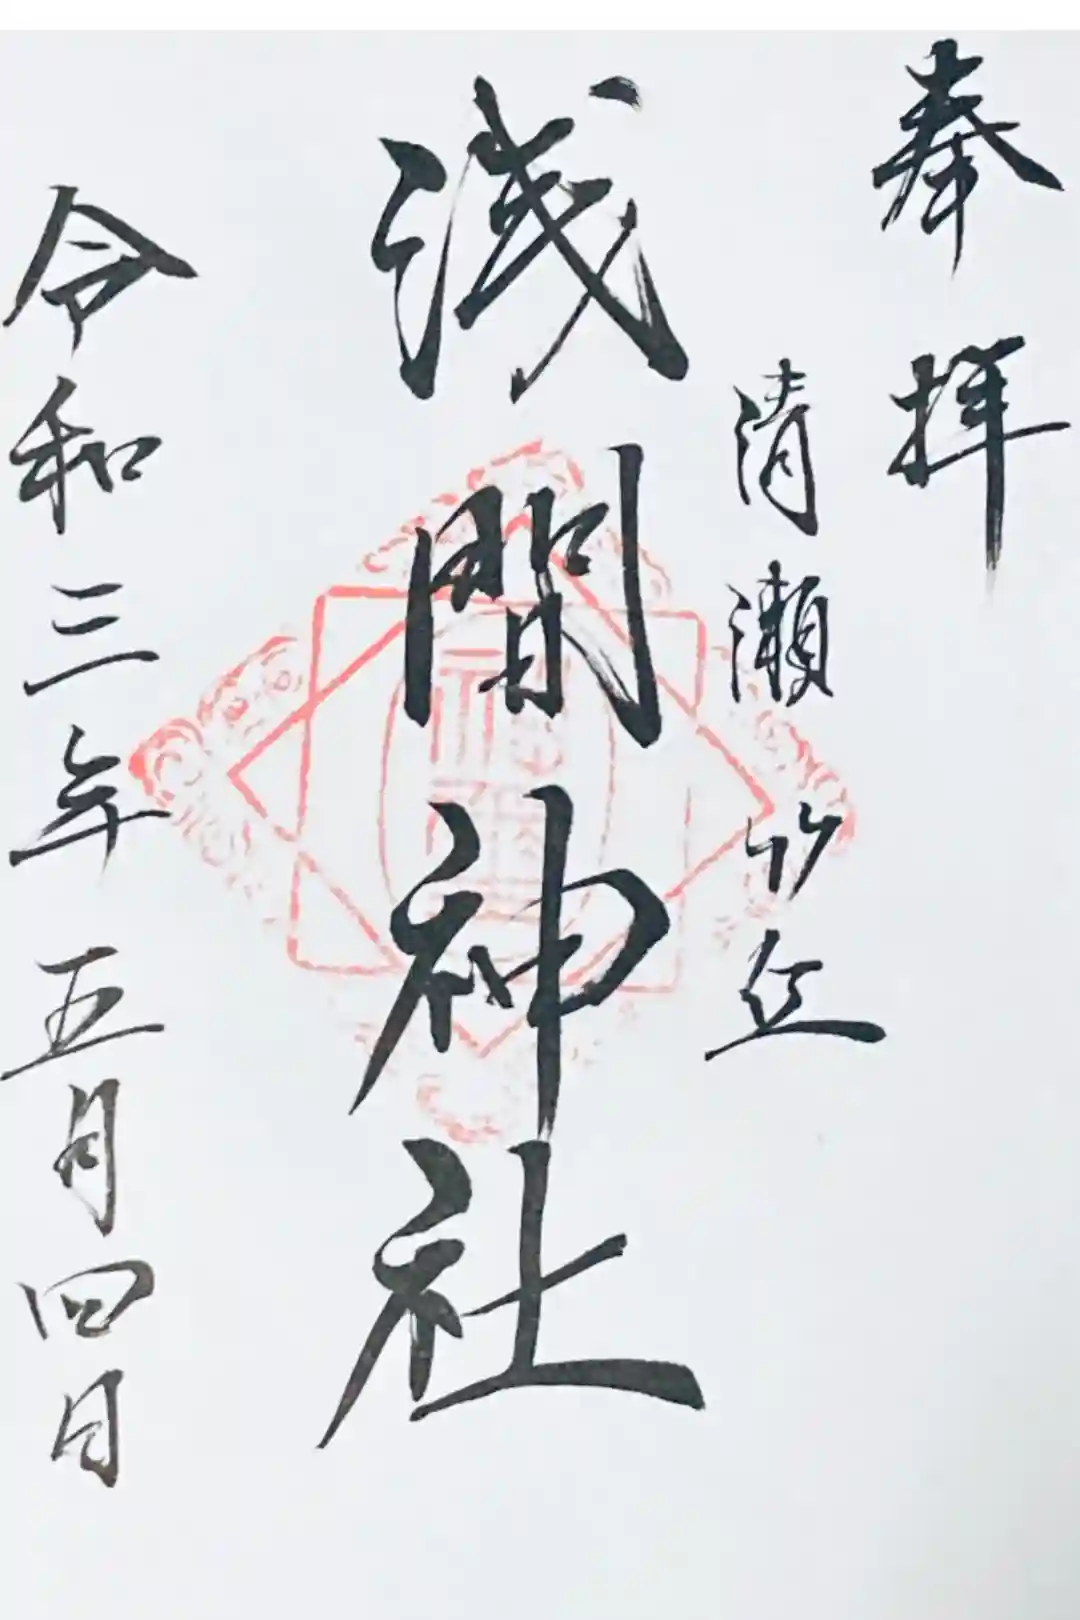 奉拝
清瀬 竹丘
浅間神社
令和三年五月四日